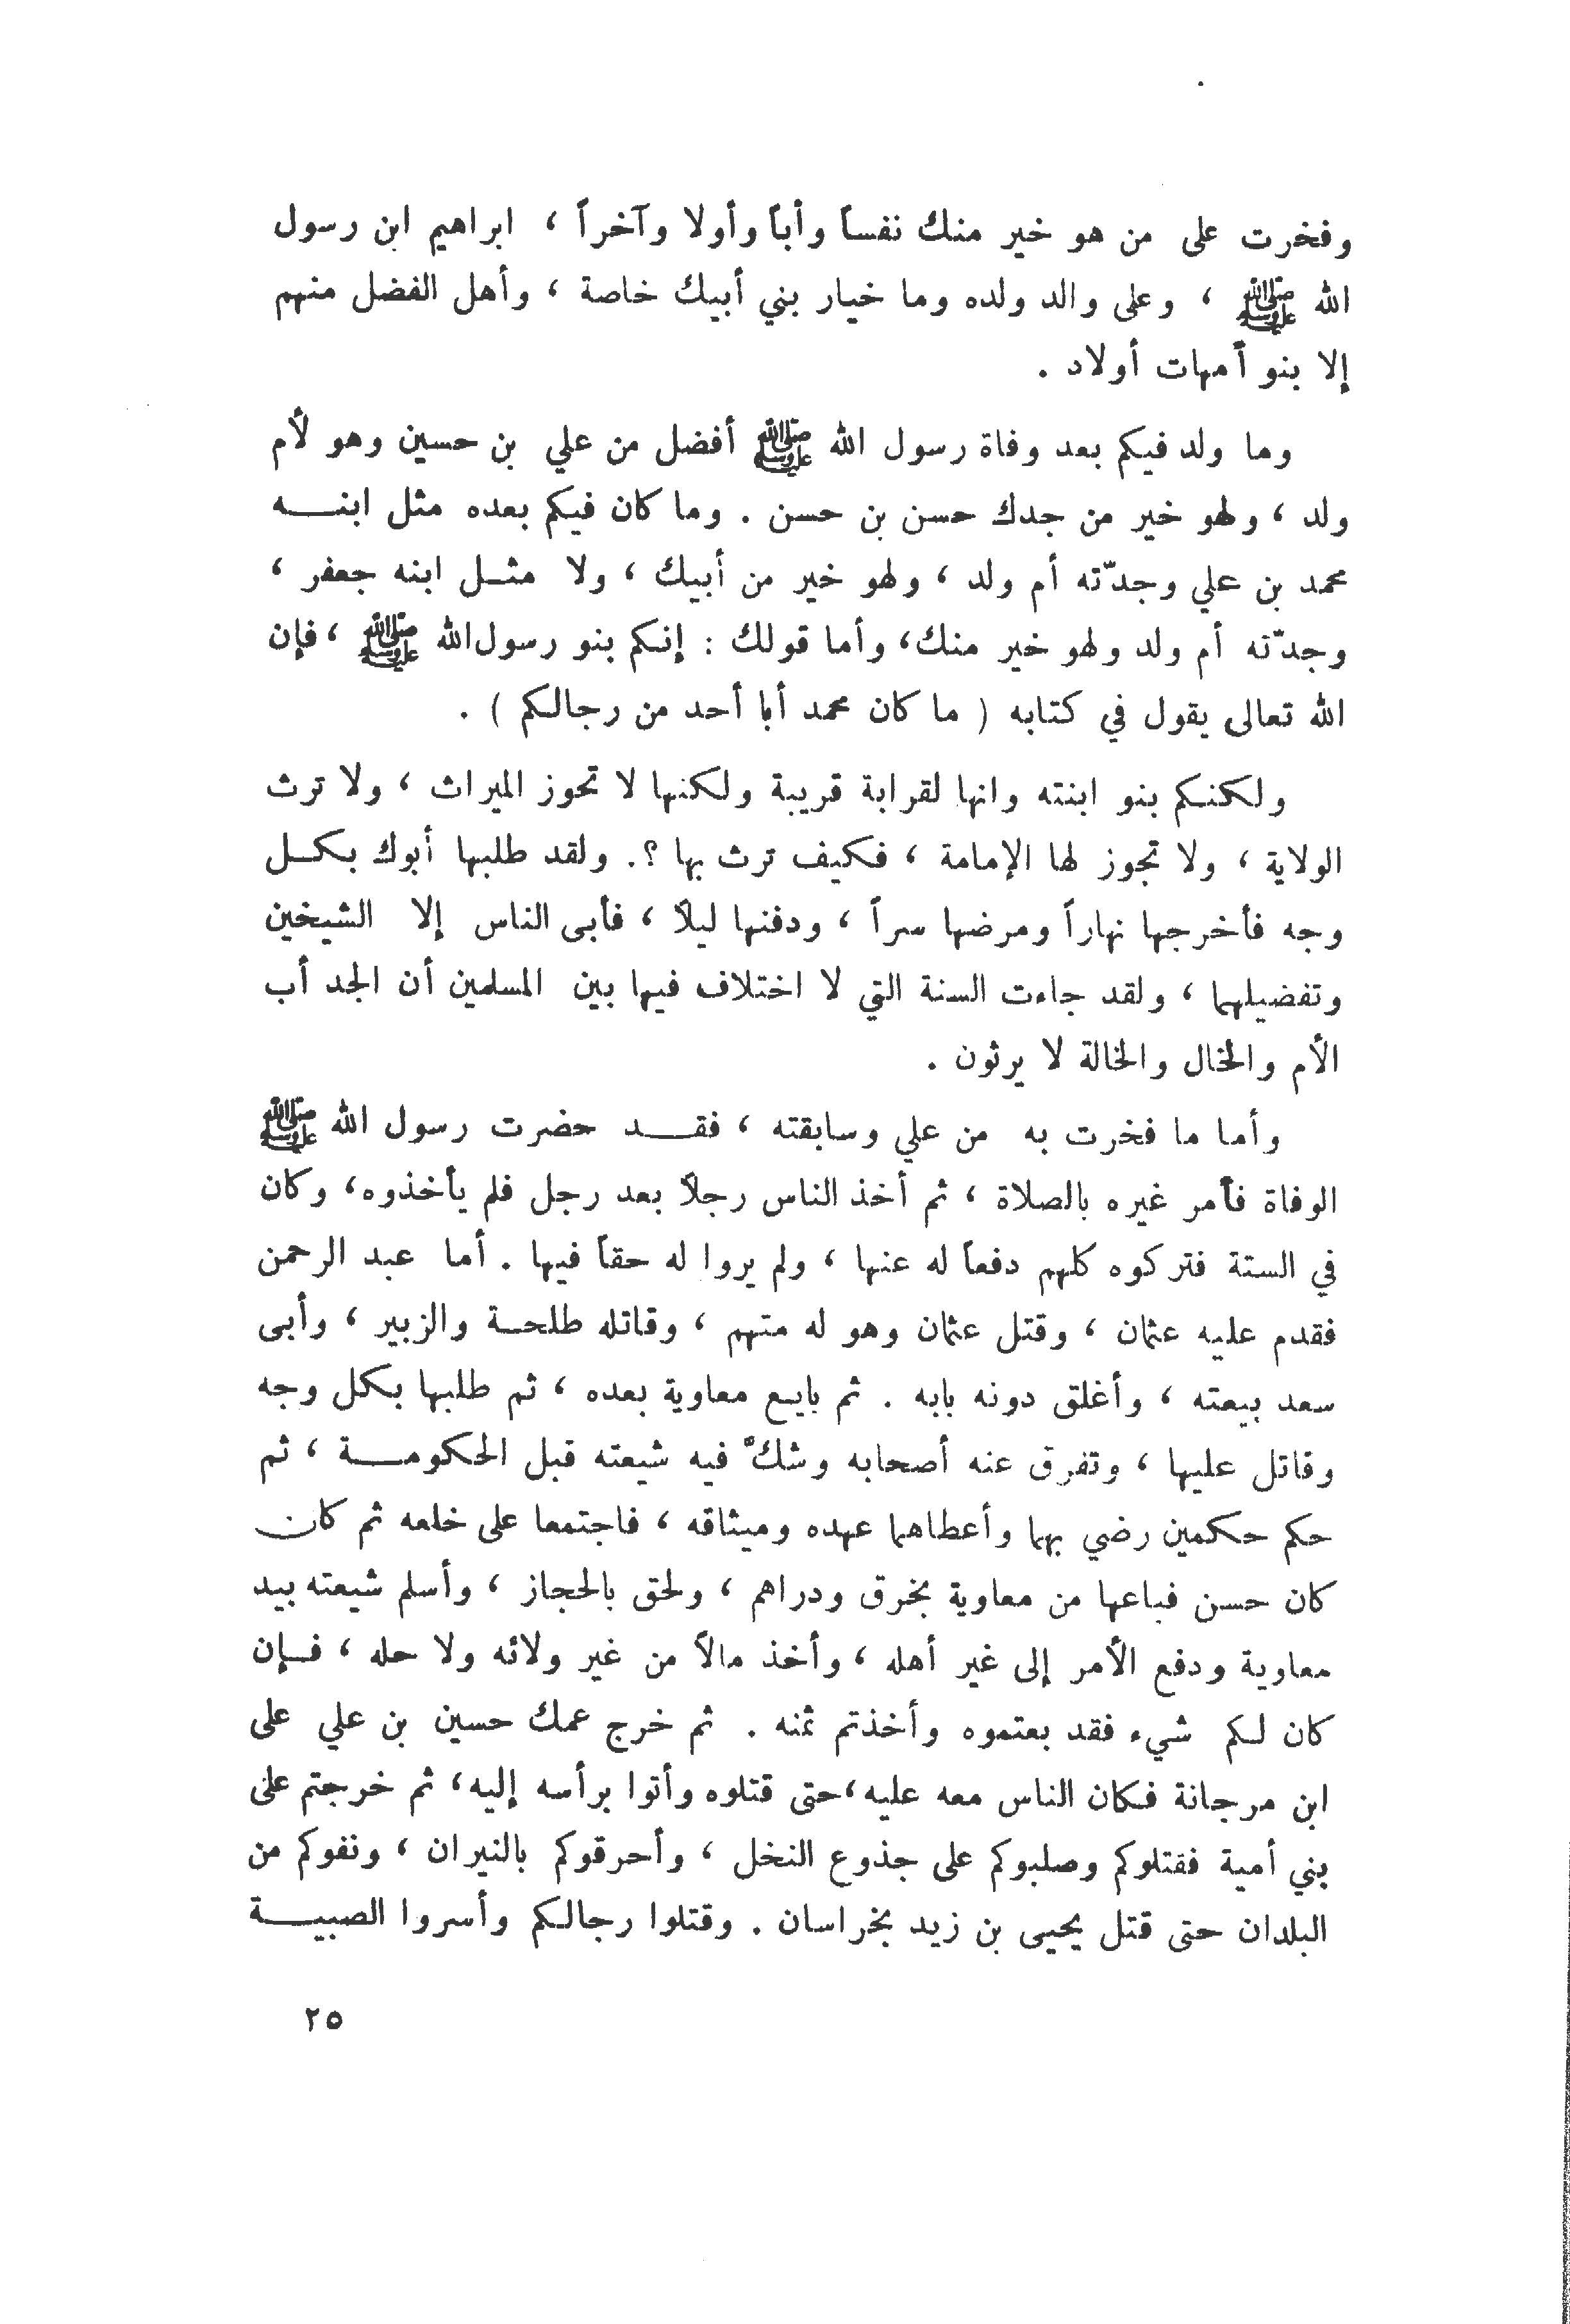 وفخرت على من هو خير منك نفساً وأباً وأولا وآخراً ، ابراهيم ابن رسول
الله ﷺ ، وعلى والد ولده وما خيار بني أبيك خاصة ، وأهل الفضل منهم
إلا بنو أمهات أولاد .
وما ولد فيكم بعد وفاة رسول الله ﷺ أفضل من علي بن حسين وهو لأم
ولد ، ولهو خير من جدك حسن بن حسن . وما كان فيكم بعده مثل ابنه
محمد بن علي وجدّته أم ولد ، ولهو خير من أبيك ، ولا مثل ابنه جعفر ،
وجدّته أم ولد ولهو خير منك، وأما قولك : إنكم بنو رسول الله ﷺ ، فإن
الله تعالى يقول في كتابه ( ما كان محمد أبا أحد من رجالكم ) .
ولكنكم بنو ابنته وانها لقرابة قريبة ولكنها لا تحوز الميراث ، ولا ترث
الولاية ، ولا تجوز لها الإمامة ، فكيف ترث بها ؟. ولقد طلبها أبوك بكل
وجه فأخرجها نهاراً ومرضها سراً ، ودفنها ليلاً ، فأبى الناس إلا الشيخين
وتفضيلهما ، ولقد جاءت السنة التي لا اختلاف فيها بين المسلمين أن الجد أب
الأم والخال والخالة لا يرثون .
وأما ما فخرت به من علي وسابقته ، فقد حضرت رسول الله ﷺ
الوفاة فأمر غيره بالصلاة ، ثم أخذ الناس رجلاً بعد رجل فلم يأخذوه، وكان
في الستة فتركوه كلهم دفعاً له عنها ، ولم يروا له حقاً فيها . أما عبد الرحمن
فقدم عليه عثمان ، وقتل عثمان وهو له متهم ، وقاتله طلحة والزبير ، وأبى
سعد بيعته ، وأغلق دونه بابه . ثم بايع معاوية بعده ، ثم طلبها بكل وجه
وقاتل عليها ، وتفرق عنه أصحابه وشكّ فيه شيعته قبل الحكومة ، ثم
حكم حكمين رضي بهما وأعطاهما عهده وميثاقه ، فاجتمعا على خلعه ثم كان
كان حسن فباعها من معاوية بخرق ودراهم ، ولحق بالحجاز ، وأسلم شيعته بيد
معاوية ودفع الأمر إلى غير أهله ، وأخذ مالاً من غير ولائه ولا حله ، فإن
كان لكم شيء فقد بعتموه وأخذتم ثمنه . ثم خرج عمك حسين بن علي على
ابن مرجانة فكان الناس معه عليه، حتى قتلوه وأتوا برأسه إليه، ثم خرجتم على
بني أمية فقتلوكم وصلبوكم على جذوع النخل ، وأحرقوكم بالنيران ، ونفوكم من
البلدان حتى قتل يحيى بن زيد بخراسان . وقتلوا رجالكم وأسروا الصبية
٢٥